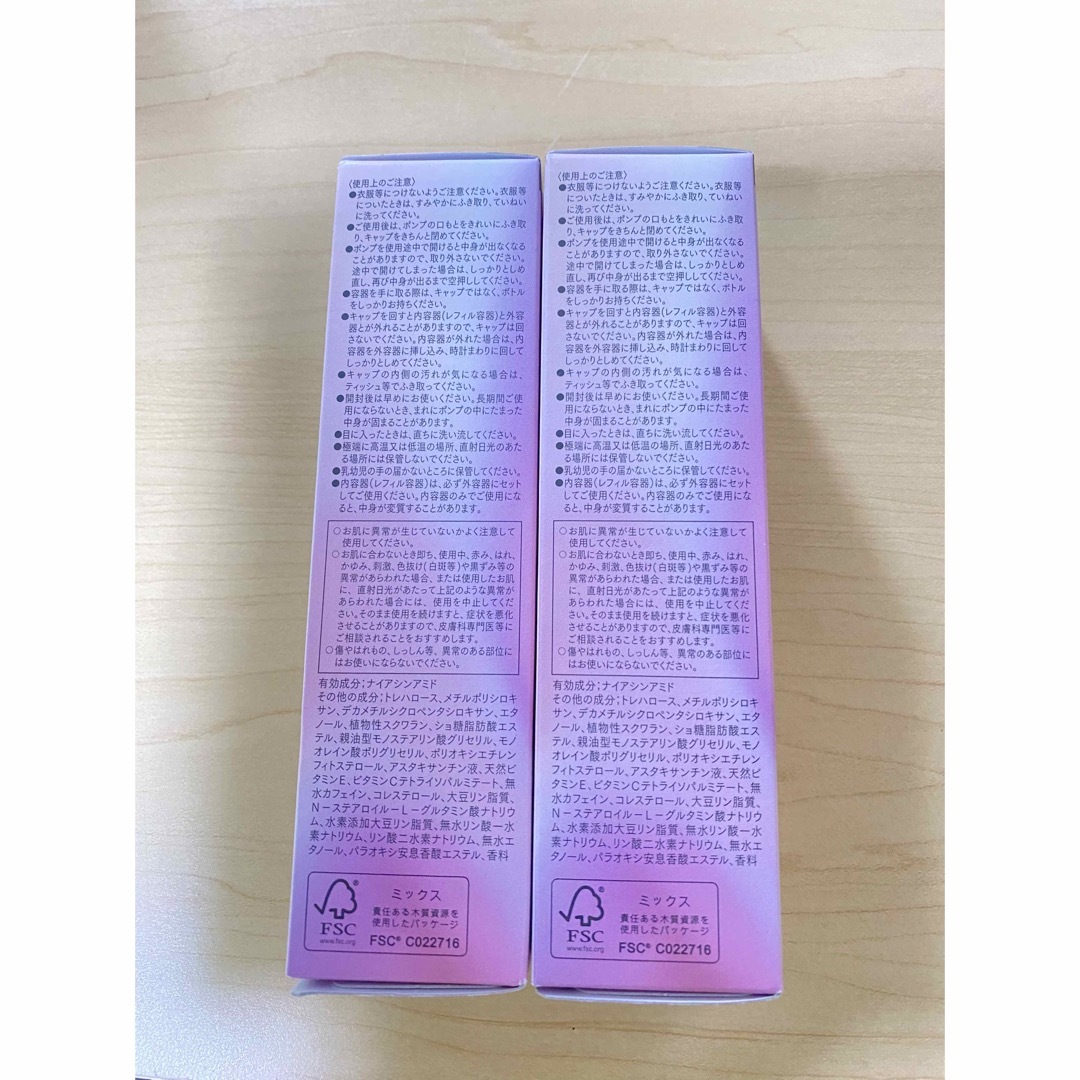 〈使用上のご注意〉
●衣服等につけないようご注意ください。衣服等
についたときは、すみやかにふき取り、ていねい
に洗ってください。
●ご使用後は、ポンプの口もとをきれいにふき取
り、キャップをきちんと閉めてください。
●ポンプを使用途中で開けると中身が出なくなる
ことがありますので、取り外さないでください。
途中で開けてしまった場合は、しっかりとしめ
直し、再び中身が出るまで空押ししてください。
●容器を手に取る際は、キャップではなく、ボトル
をしっかりお持ちください。
●キャップを回すと内容器(レフィル容器)と外容
器とが外れることがありますので、キャップは回
さないでください。内容器が外れた場合は、内
容器を外容器に挿し込み、時計まわりに回して
しっかりとしめてください。
●キャップの内側の汚れが気になる場合は、
ティッシュ等でふき取ってください。
●開封後は早めにお使いください。長期間ご使
用にならないとき、まれにポンプの中にたまった
中身が固まることがあります。
●目に入ったときは、直ちに洗い流してください。
●極端に高温又は低温の場所、直射日光のあた
る場所には保管しないでください。
●乳幼児の手の届かないところに保管してください。
●内容器(レフィル容器)は、必ず外容器にセット
してご使用ください。内容器のみでご使用にな
ると、中身が変質することがあります。
○お肌に異常が生じていないかよく注意して
使用してください。
○お肌に合わないとき即ち、使用中、赤み、はれ、
かゆみ、刺激、色抜け(白斑等)や黒ずみ等の
異常があらわれた場合、または使用したお肌
に、直射日光があたって上記のような異常が
あらわれた場合には、使用を中止してくだ
さい。そのまま使用を続けますと、症状を悪化
させることがありますので、皮膚科専門医等に
ご相談されることをおすすめします。
○傷やはれもの、しっしん等、異常のある部位に
はお使いにならないでください。
有効成分;ナイアシンアミド
その他の成分;トレハロース、メチルポリシロキ
サン、デカメチルシクロペンタシロキサン、エタ
ノール、植物性スクワラン、ショ糖脂肪酸エス
テル、親油型モノステアリン酸グリセリル、モノ
オレイン酸ポリグリセリル、ポリオキシエチレン
フィトステロール、アスタキサンチン液、天然ビ
タミンE、ビタミンCテトライソパルミテート、無
水カフェイン、コレステロール、大豆リン脂質、
N－ステアロイル－L－グルタミン酸ナトリウ
ム、水素添加大豆リン脂質、無水リン酸一水
素ナトリウム、リン酸二水素ナトリウム、無水エ
タノール、パラオキシ安息香酸エステル、香料
FSC
www.fsc.org
ミックス
責任ある木質資源を
使用したパッケージ
FSC® C022716
〈使用上のご注意〉
●衣服等につけないようご注意ください。衣服等
についたときは、すみやかにふき取り、ていねい
に洗ってください。
●ご使用後は、ポンプの口もとをきれいにふき取
り、キャップをきちんと閉めてください。
●ポンプを使用途中で開けると中身が出なくなる
ことがありますので、取り外さないでください。
途中で開けてしまった場合は、しっかりとしめ
直し、再び中身が出るまで空押ししてください。
●容器を手に取る際は、キャップではなく、ボトル
をしっかりお持ちください。
●キャップを回すと内容器(レフィル容器)と外容
器とが外れることがありますので、キャップは回
さないでください。内容器が外れた場合は、内
容器を外容器に挿し込み、時計まわりに回して
しっかりとしめてください。
●キャップの内側の汚れが気になる場合は、
ティッシュ等でふき取ってください。
●開封後は早めにお使いください。長期間ご使
用にならないとき、まれにポンプの中にたまった
中身が固まることがあります。
●目に入ったときは、直ちに洗い流してください。
●極端に高温又は低温の場所、直射日光のあた
る場所には保管しないでください。
●乳幼児の手の届かないところに保管してください。
●内容器(レフィル容器)は、必ず外容器にセット
してご使用ください。内容器のみでご使用にな
ると、中身が変質することがあります。
○お肌に異常が生じていないかよく注意して
使用してください。
○お肌に合わないとき即ち、使用中、赤み、はれ、
かゆみ、刺激、色抜け(白斑等)や黒ずみ等の
異常があらわれた場合、または使用したお肌
に、直射日光があたって上記のような異常が
あらわれた場合には、使用を中止してくだ
さい。そのまま使用を続けますと、症状を悪化
させることがありますので、皮膚科専門医等に
ご相談されることをおすすめします。
○傷やはれもの、しっしん等、異常のある部位に
はお使いにならないでください。
有効成分;ナイアシンアミド
その他の成分;トレハロース、メチルポリシロキ
サン、デカメチルシクロペンタシロキサン、エタ
ノール、植物性スクワラン、ショ糖脂肪酸エス
テル、親油型モノステアリン酸グリセリル、モノ
オレイン酸ポリグリセリル、ポリオキシエチレン
フィトステロール、アスタキサンチン液、天然ビ
タミンE、ビタミンCテトライソパルミテート、無
水カフェイン、コレステロール、大豆リン脂質、
N－ステアロイル－L－グルタミン酸ナトリウ
ム、水素添加大豆リン脂質、無水リン酸一水
素ナトリウム、リン酸二水素ナトリウム、無水エ
タノール、パラオキシ安息香酸エステル、香料
FSC
www.fsc.org
ミックス
責任ある木質資源を
使用したパッケージ
FSC® C022716